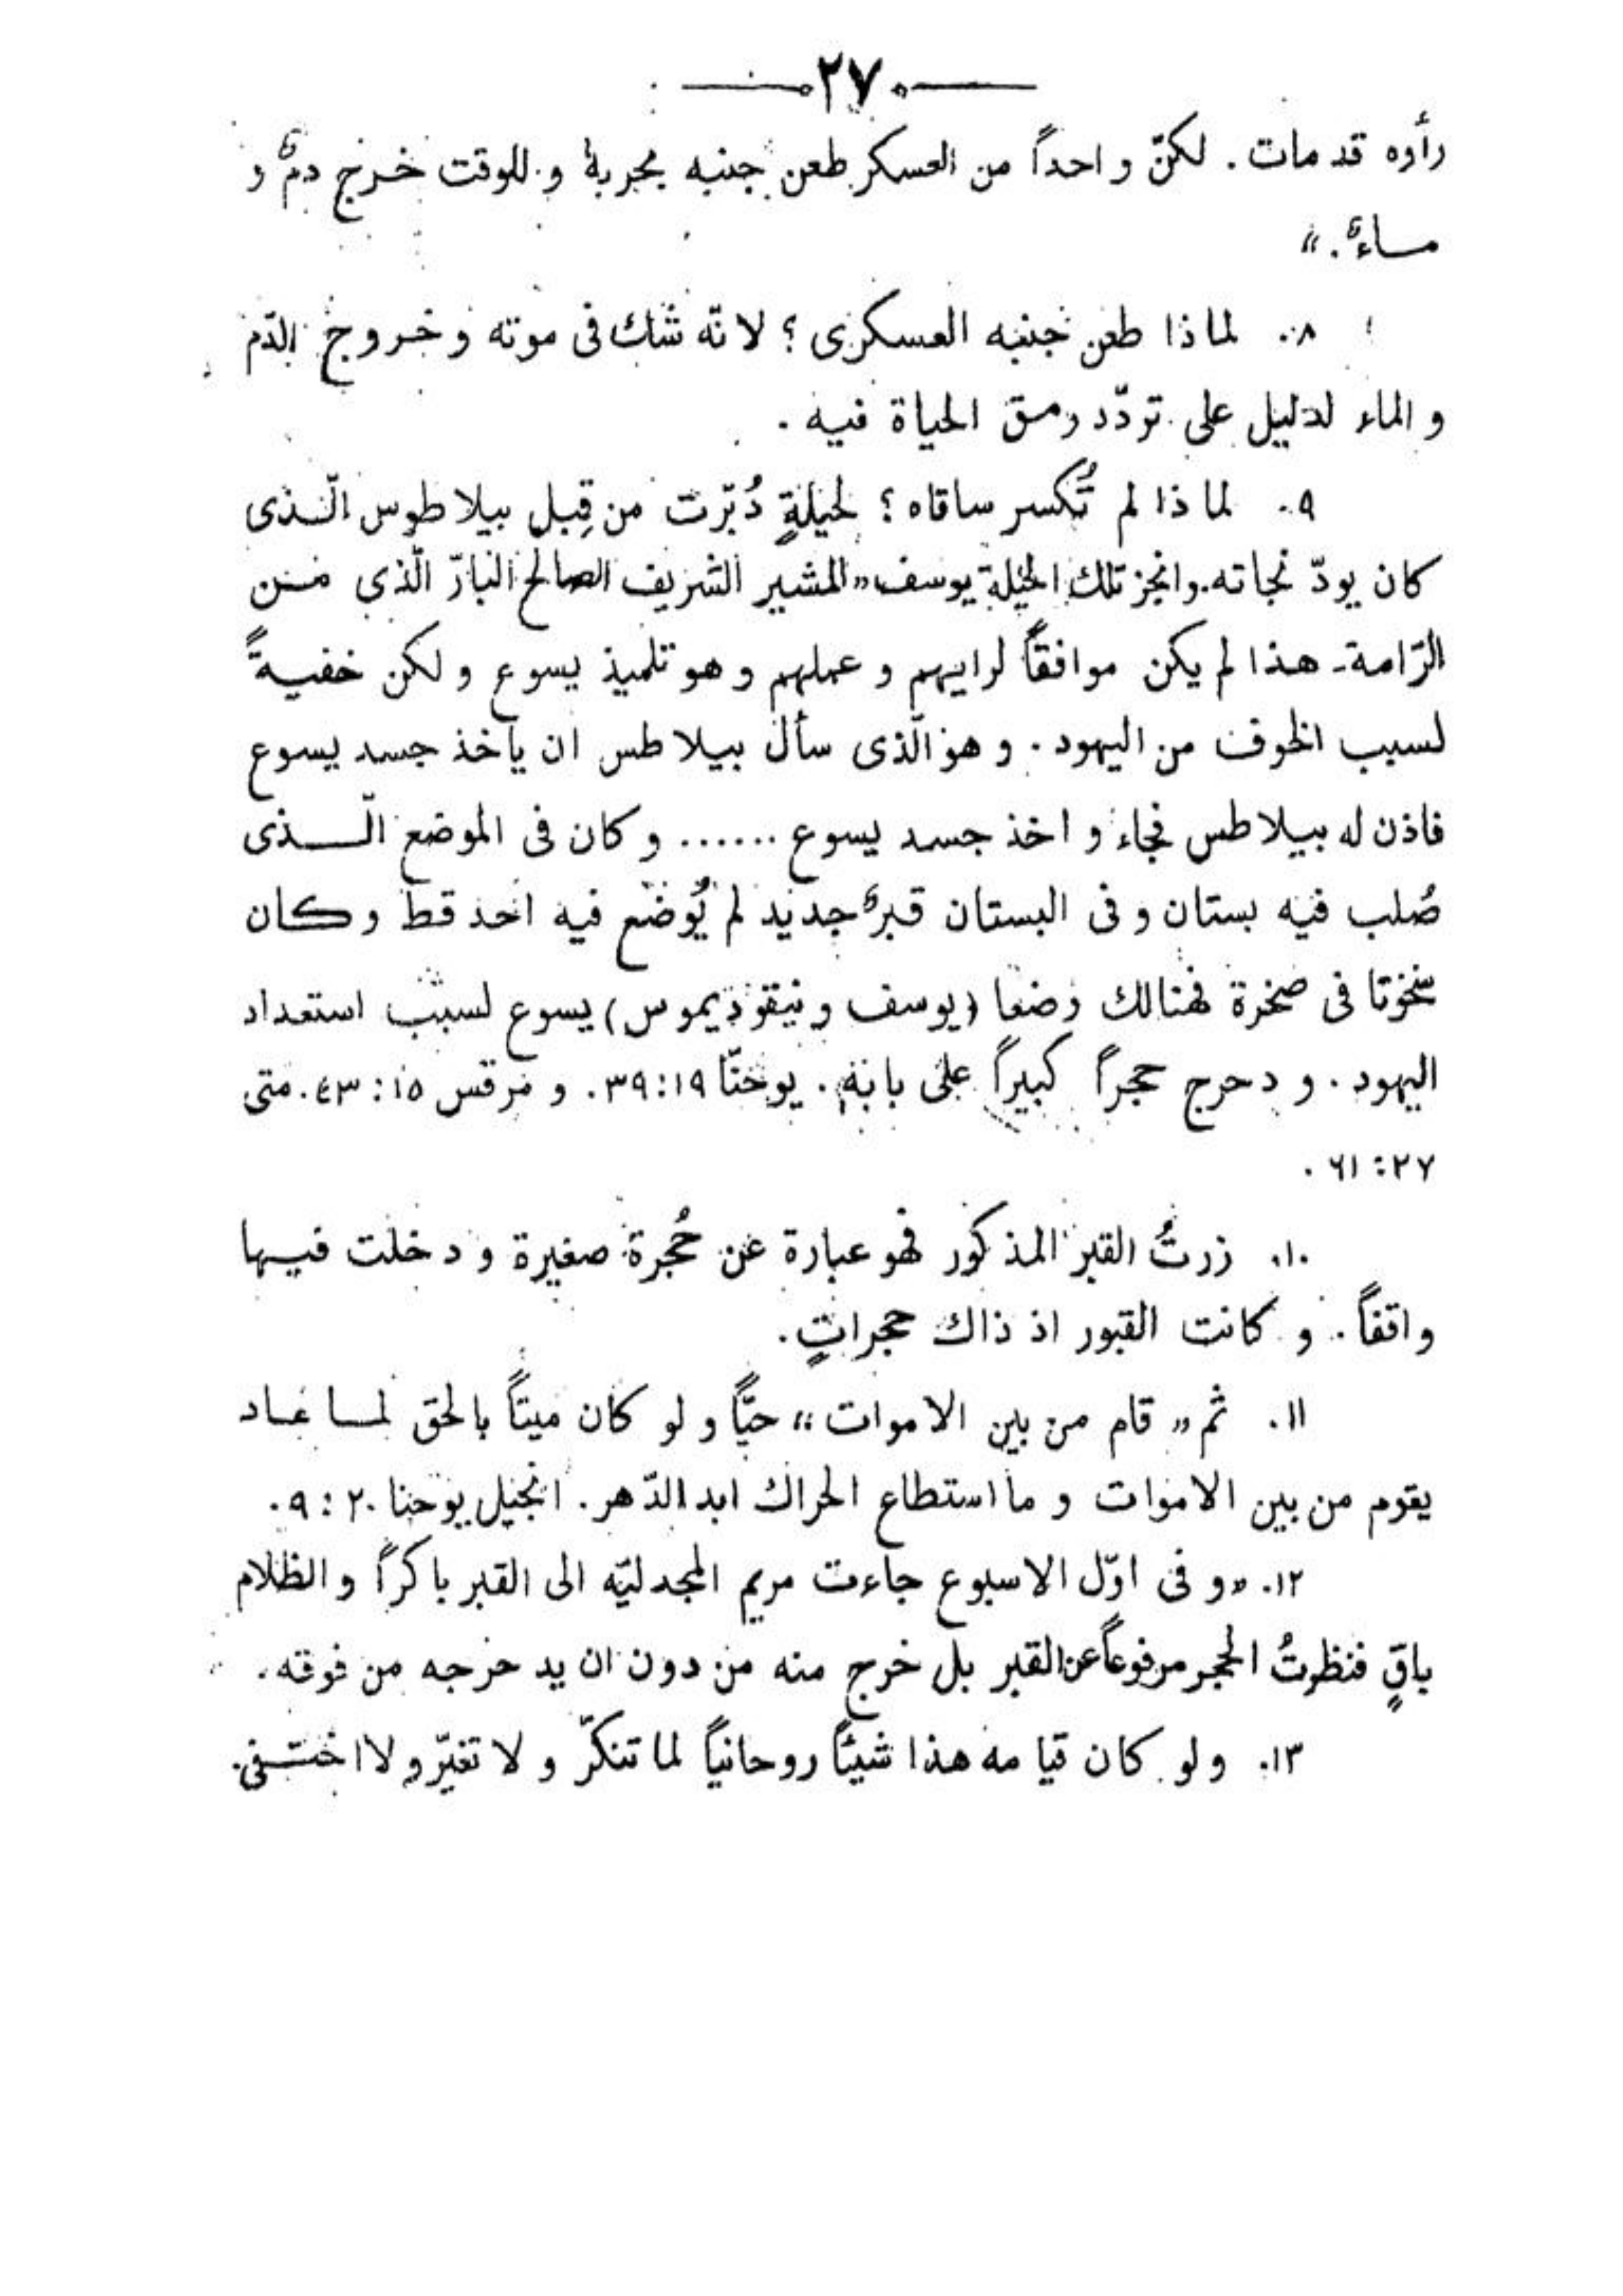 ٢٧
رأوه قد مات. لكنّ واحداً من العسكر طعن جنبه بحربة وللوقت خرج دمٌ و
ماءٌ.»
٨. لماذا طعن جنبه العسكرى؟ لانّه شك فى موته وخروج الدّم
والماء لدليل على تردّد رمق الحياة فيه.
٩. لماذا لم تُكسر ساقاه؟ لحيلةٍ دُبّرت من قِبل بيلاطوس الّذى
كان يودّ نجاته. وانجز تلك الحيلة يوسف «المشير الشريف الصالح البارّ الّذى من
الرّامة۔ هذا لم يكن موافقاً لرايهم وعملهم وهو تلميذ يسوع ولكن خفيةً
لسبب الخوف من اليهود. وهو الّذى سأل بيلاطس ان ياخذ جسد يسوع
فاذن له بيلاطس فجاء واخذ جسد يسوع ...... وكان فى الموضع الّذى
صُلب فيه بستان وفى البستان قبرٌ جديد لم يُوضع فيه احد قط وكان
منحوتا فى صخرة فهنالك وضعا (يوسف ونيقوديموس) يسوع لسبب استعداد
اليهود. ودحرج حجراً كبيراً على بابه. يوحنّا ١٩:٣٩. ومرقس ١٥:٤٣. متى
٢٧:٦١.
١٠. زرتُ القبر المذكور فهو عبارة عن حُجرة صغيرة ودخلت فيها
واقفاً. وكانت القبور اذ ذاك حجراتٍ.
١١. ثم «قام من بين الاموات» حيّاً ولو كان ميتاً بالحق لما عاد
يقوم من بين الاموات وما استطاع الحراك ابد الدّهر. انجيل يوحنا ٢٠:٩.
١٢. «وفى اوّل الاسبوع جاءت مريم المجدليّه الى القبر باكراً والظلام
باقٍ فنظرتُ الحجر مرفوعاً عن القبر بل خرج منه من دون ان يدحرجه من فوقه.
١٣. ولو كان قيامه هذا شيئاً روحانياً لما تنكّر ولا تغيّر ولا اختفى.